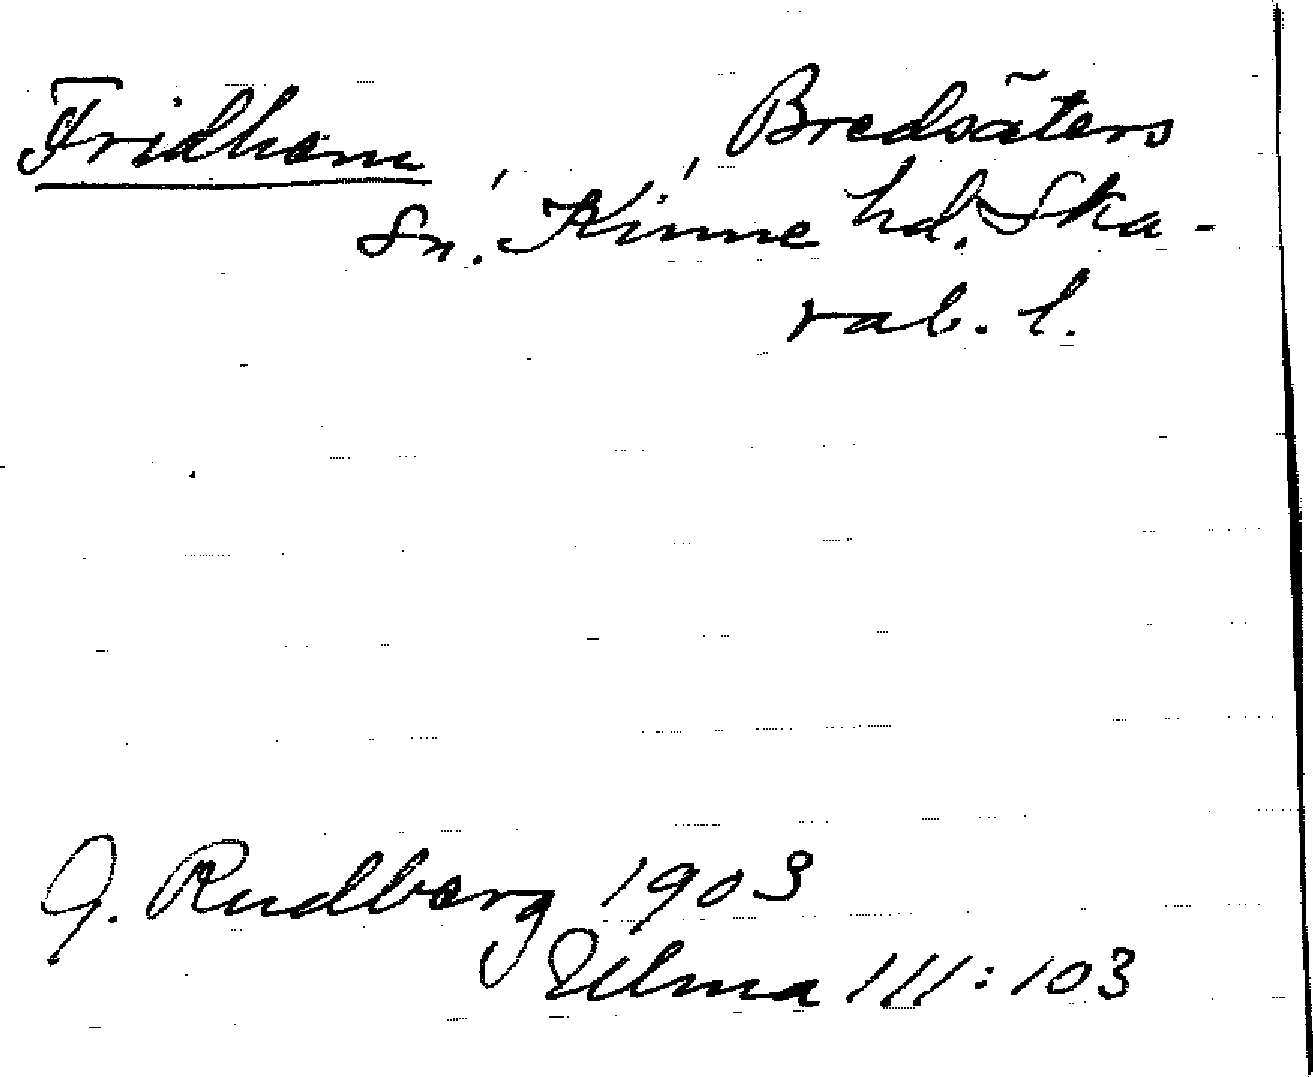 Fridhem Bredsäters
sn. Kinne hd. Ska-
rab. l.
G. Rudberg 1903
Ulma 111:103